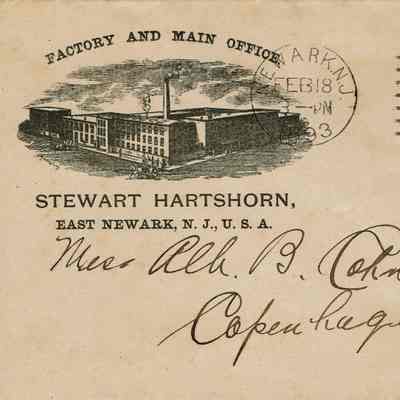 FACTORY AND MAIN OFFICE.
NEWARK N.J.
FEB 18
PM
93
STEWART HARTSHORN,
EAST NEWARK, N. J., U. S. A.
Mess Alb. B. Cohn
Copenhag